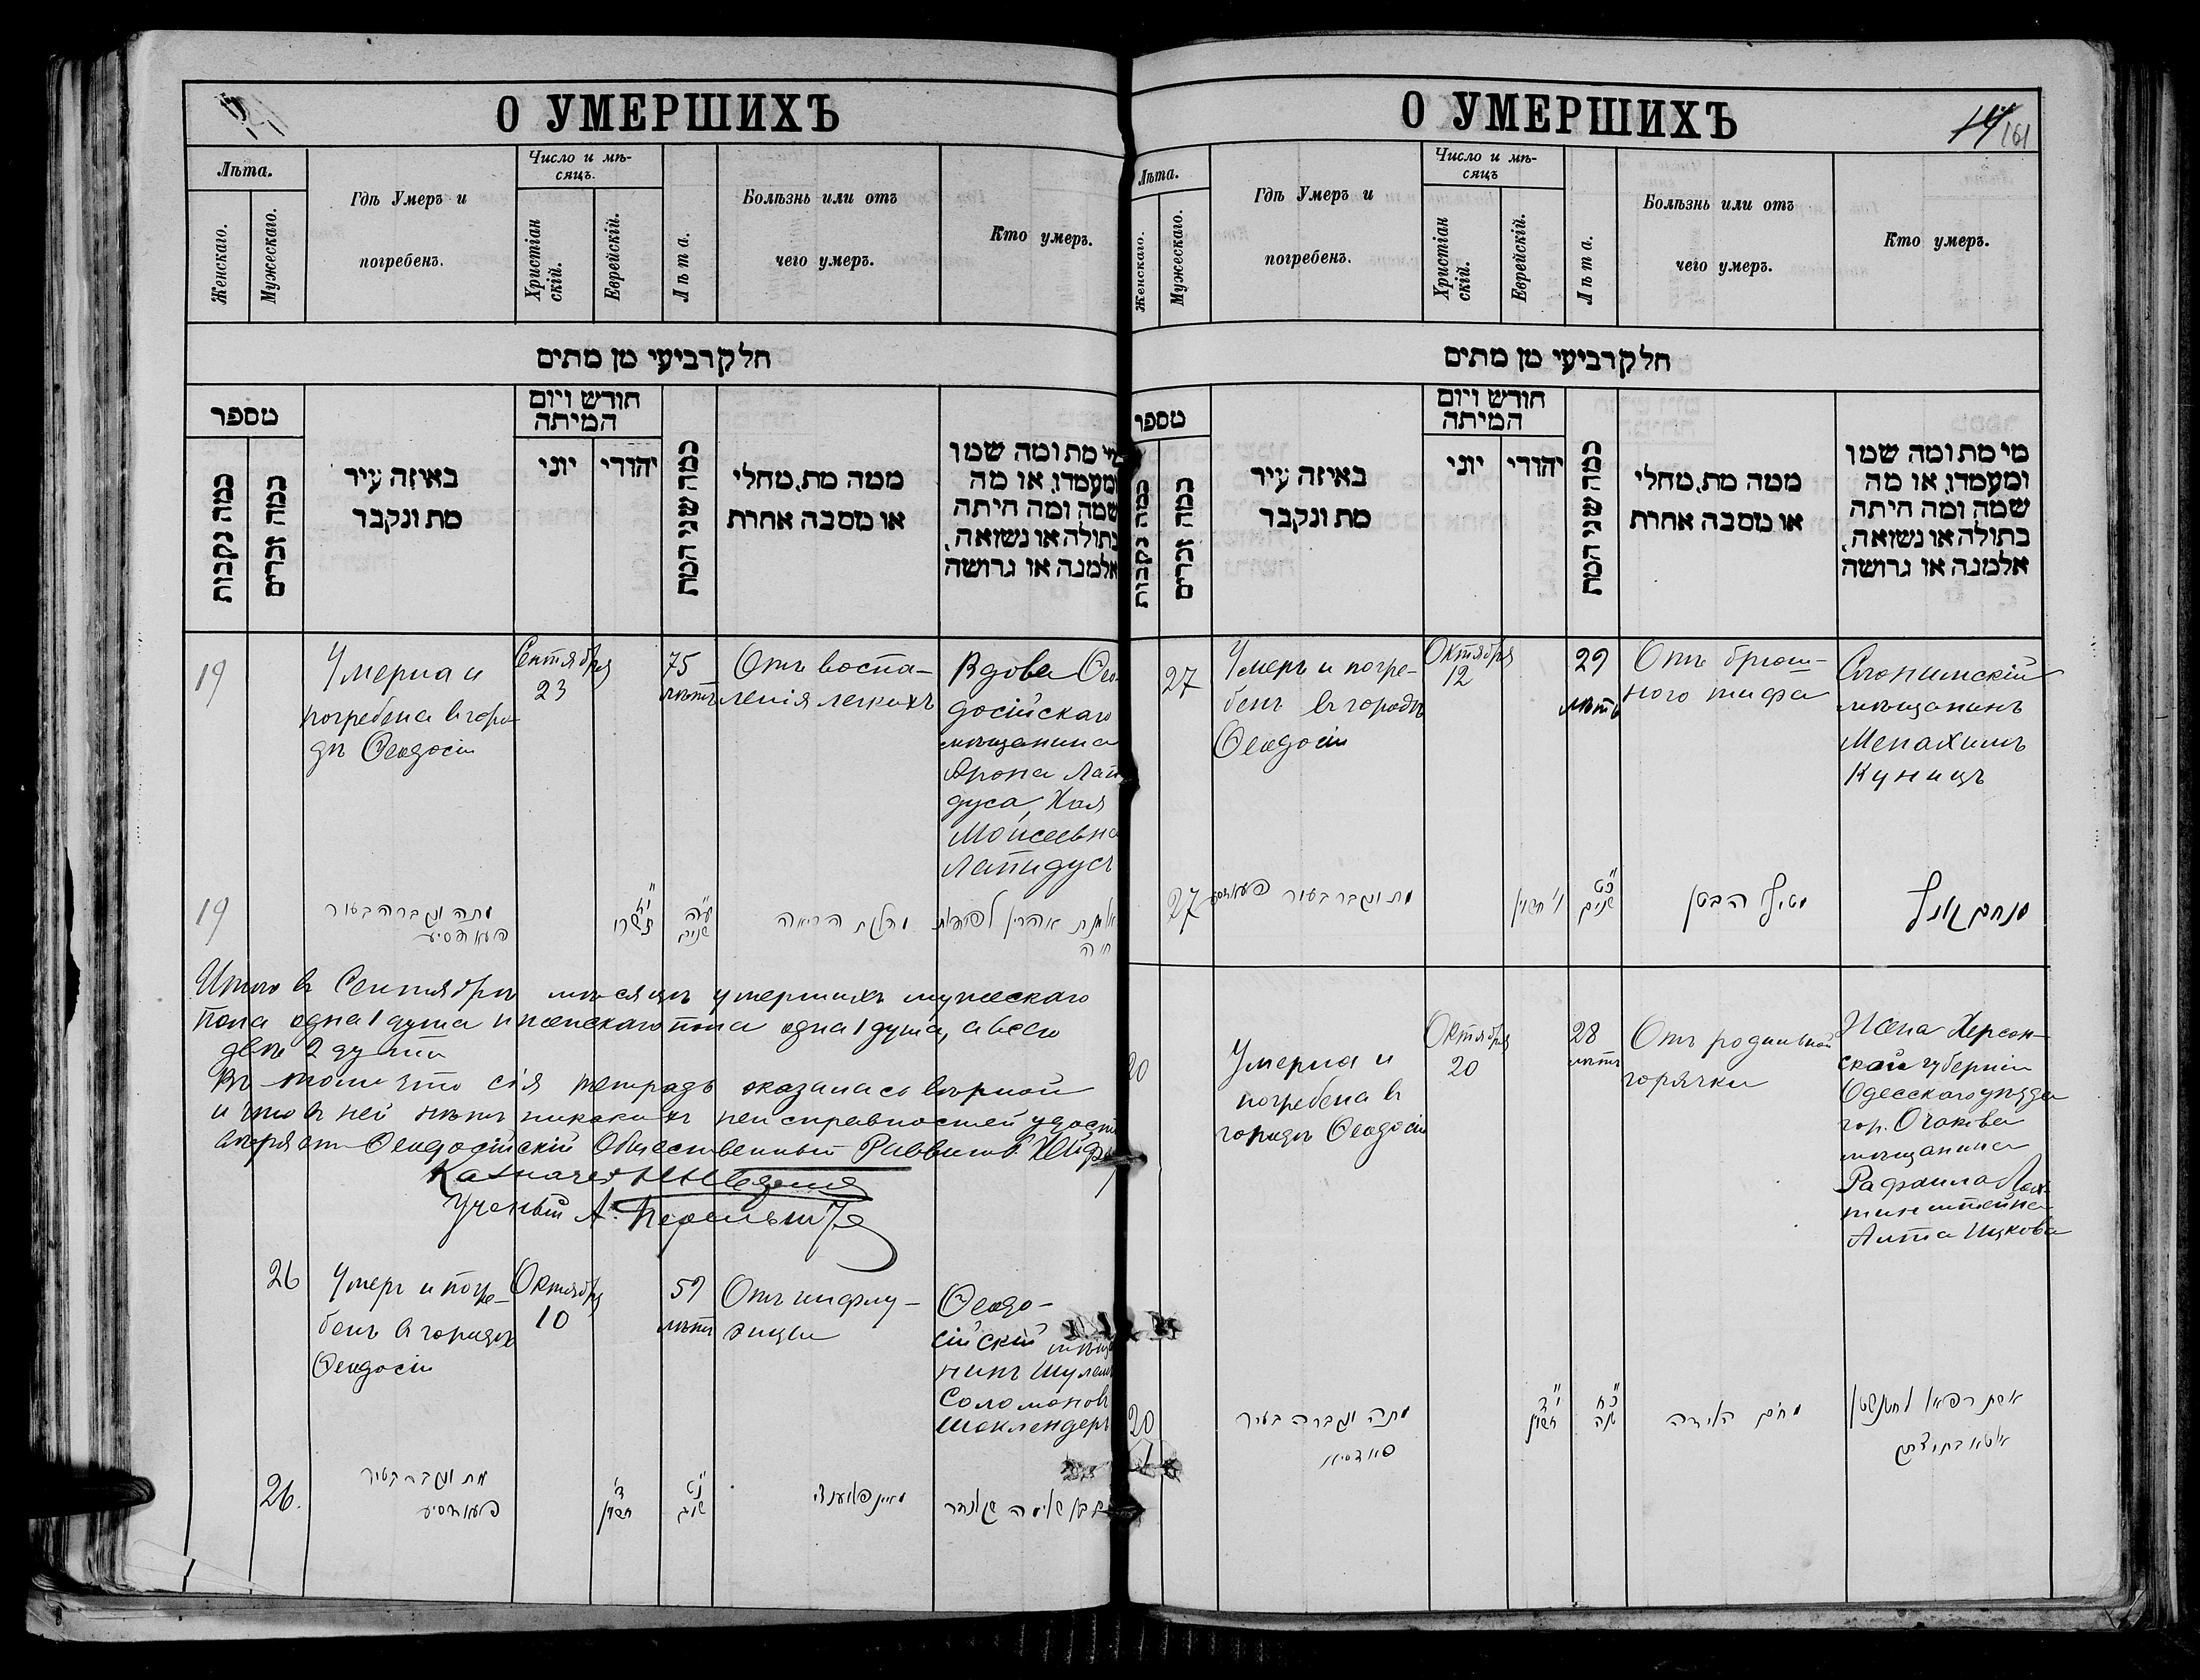 О УМЕРШИХЪ
Лѣта.
Женскаго.
Мужескаго.
Гдѣ Умеръ и
погребенъ.
Число и мѣ-
сяцъ.
Христіан
скій.
Еврейскій.
Лѣта.
Болѣзнь или отъ
чего умеръ.
Кто умеръ.
חלק רביעי מן מתים
מספר
כמה נקבות
כמה זכרים
באיזה עיר
מת ונקבר
חודש ויום
המיתה
יוני
יהודי
כמה שני המת
ממה מת, מחלי
או מסבה אחרת
מי מת ומה שמו
ומעמדו, או מה
שמה ומה היתה
בתולה או נשואה,
אלמנה או גרושה
19
Умерла и
погребена в горо-
дѣ Ѳеодосіи
Сентября
23
75
лѣтъ
Отъ воспа-
ленія легкихъ
Вдова Ѳео-
досійскаго
мѣщанина
Арона Лапи
дуса, Хая
Моисеевна
Лапидусъ
19
מתה ונקברה בעיר
פעאדסיע
תשרי
ע״ה
שנים
מחלת הריאה
אלמנת אהרין לפידות
חיה
Итого в Сентябрѣ мѣсяцѣ умершихъ мужескаго
пола одна 1 душа и женскаго пола одна 1 душа, а всего
двѣ 2 души
Въ томъ что сія тетрадь оказалась вѣрной
и что в ней нѣтъ никакихъ неисправностей удосто
вѣряетъ Ѳеодосійскій Общественный Раввинъ
Казначей
Ученый А.
26
Умеръ и погре-
бенъ в городѣ
Ѳеодосіи
Октября
10
59
лѣтъ
Отъ инфлу-
энцы
Ѳеодо-
сійскій мѣща
нинъ Шулем
Соломоновъ
Шоклендеръ
26.
מת ונקבר בעיר
פעאדסיע
חשון
נ״ט
שנים
О УМЕРШИХЪ
14 161
Лѣта.
Женскаго.
Мужескаго.
Гдѣ Умеръ и
погребенъ.
Число и мѣ-
сяцъ
Христіан
скій.
Еврейскій.
Лѣта.
Болѣзнь или отъ
чего умеръ.
Кто умеръ.
חלק רביעי מן מתים
מספר
כמה נקבות
כמה זכרים
באיזה עיר
מת ונקבר
חודש ויום
המיתה
יוני
יהודי
כמה שני המת
ממה מת, מחלי
או מסבה אחרת
מי מת ומה שמו
ומעמדו, או מה
שמה ומה היתה
בתולה או נשואה,
אלמנה או גרושה
27
Умеръ и погре-
бенъ в городѣ
Ѳеодосіи
Октября
12
29
лѣтъ
Отъ брюш-
ного тифа
Слонимскій
мѣщанинъ
Менахимъ
Куницъ
27
מת ונקבר בעיר
ו׳ חשון
כ״ט
שנים
טיף הבטן
מנחם
20
Умерла и
погребена в
городѣ Ѳеодосіи
Октября
20
28
лѣтъ
Отъ родильной
горячки
Жена Херсон-
ской губерніи
Одесскаго уѣзда
гор. Очакова
мѣщанина
Рафаила
Ицкова
20
מתה ונקברה בעיר
י״ד
חשון
כ״ח
שנה
אשת רפאל